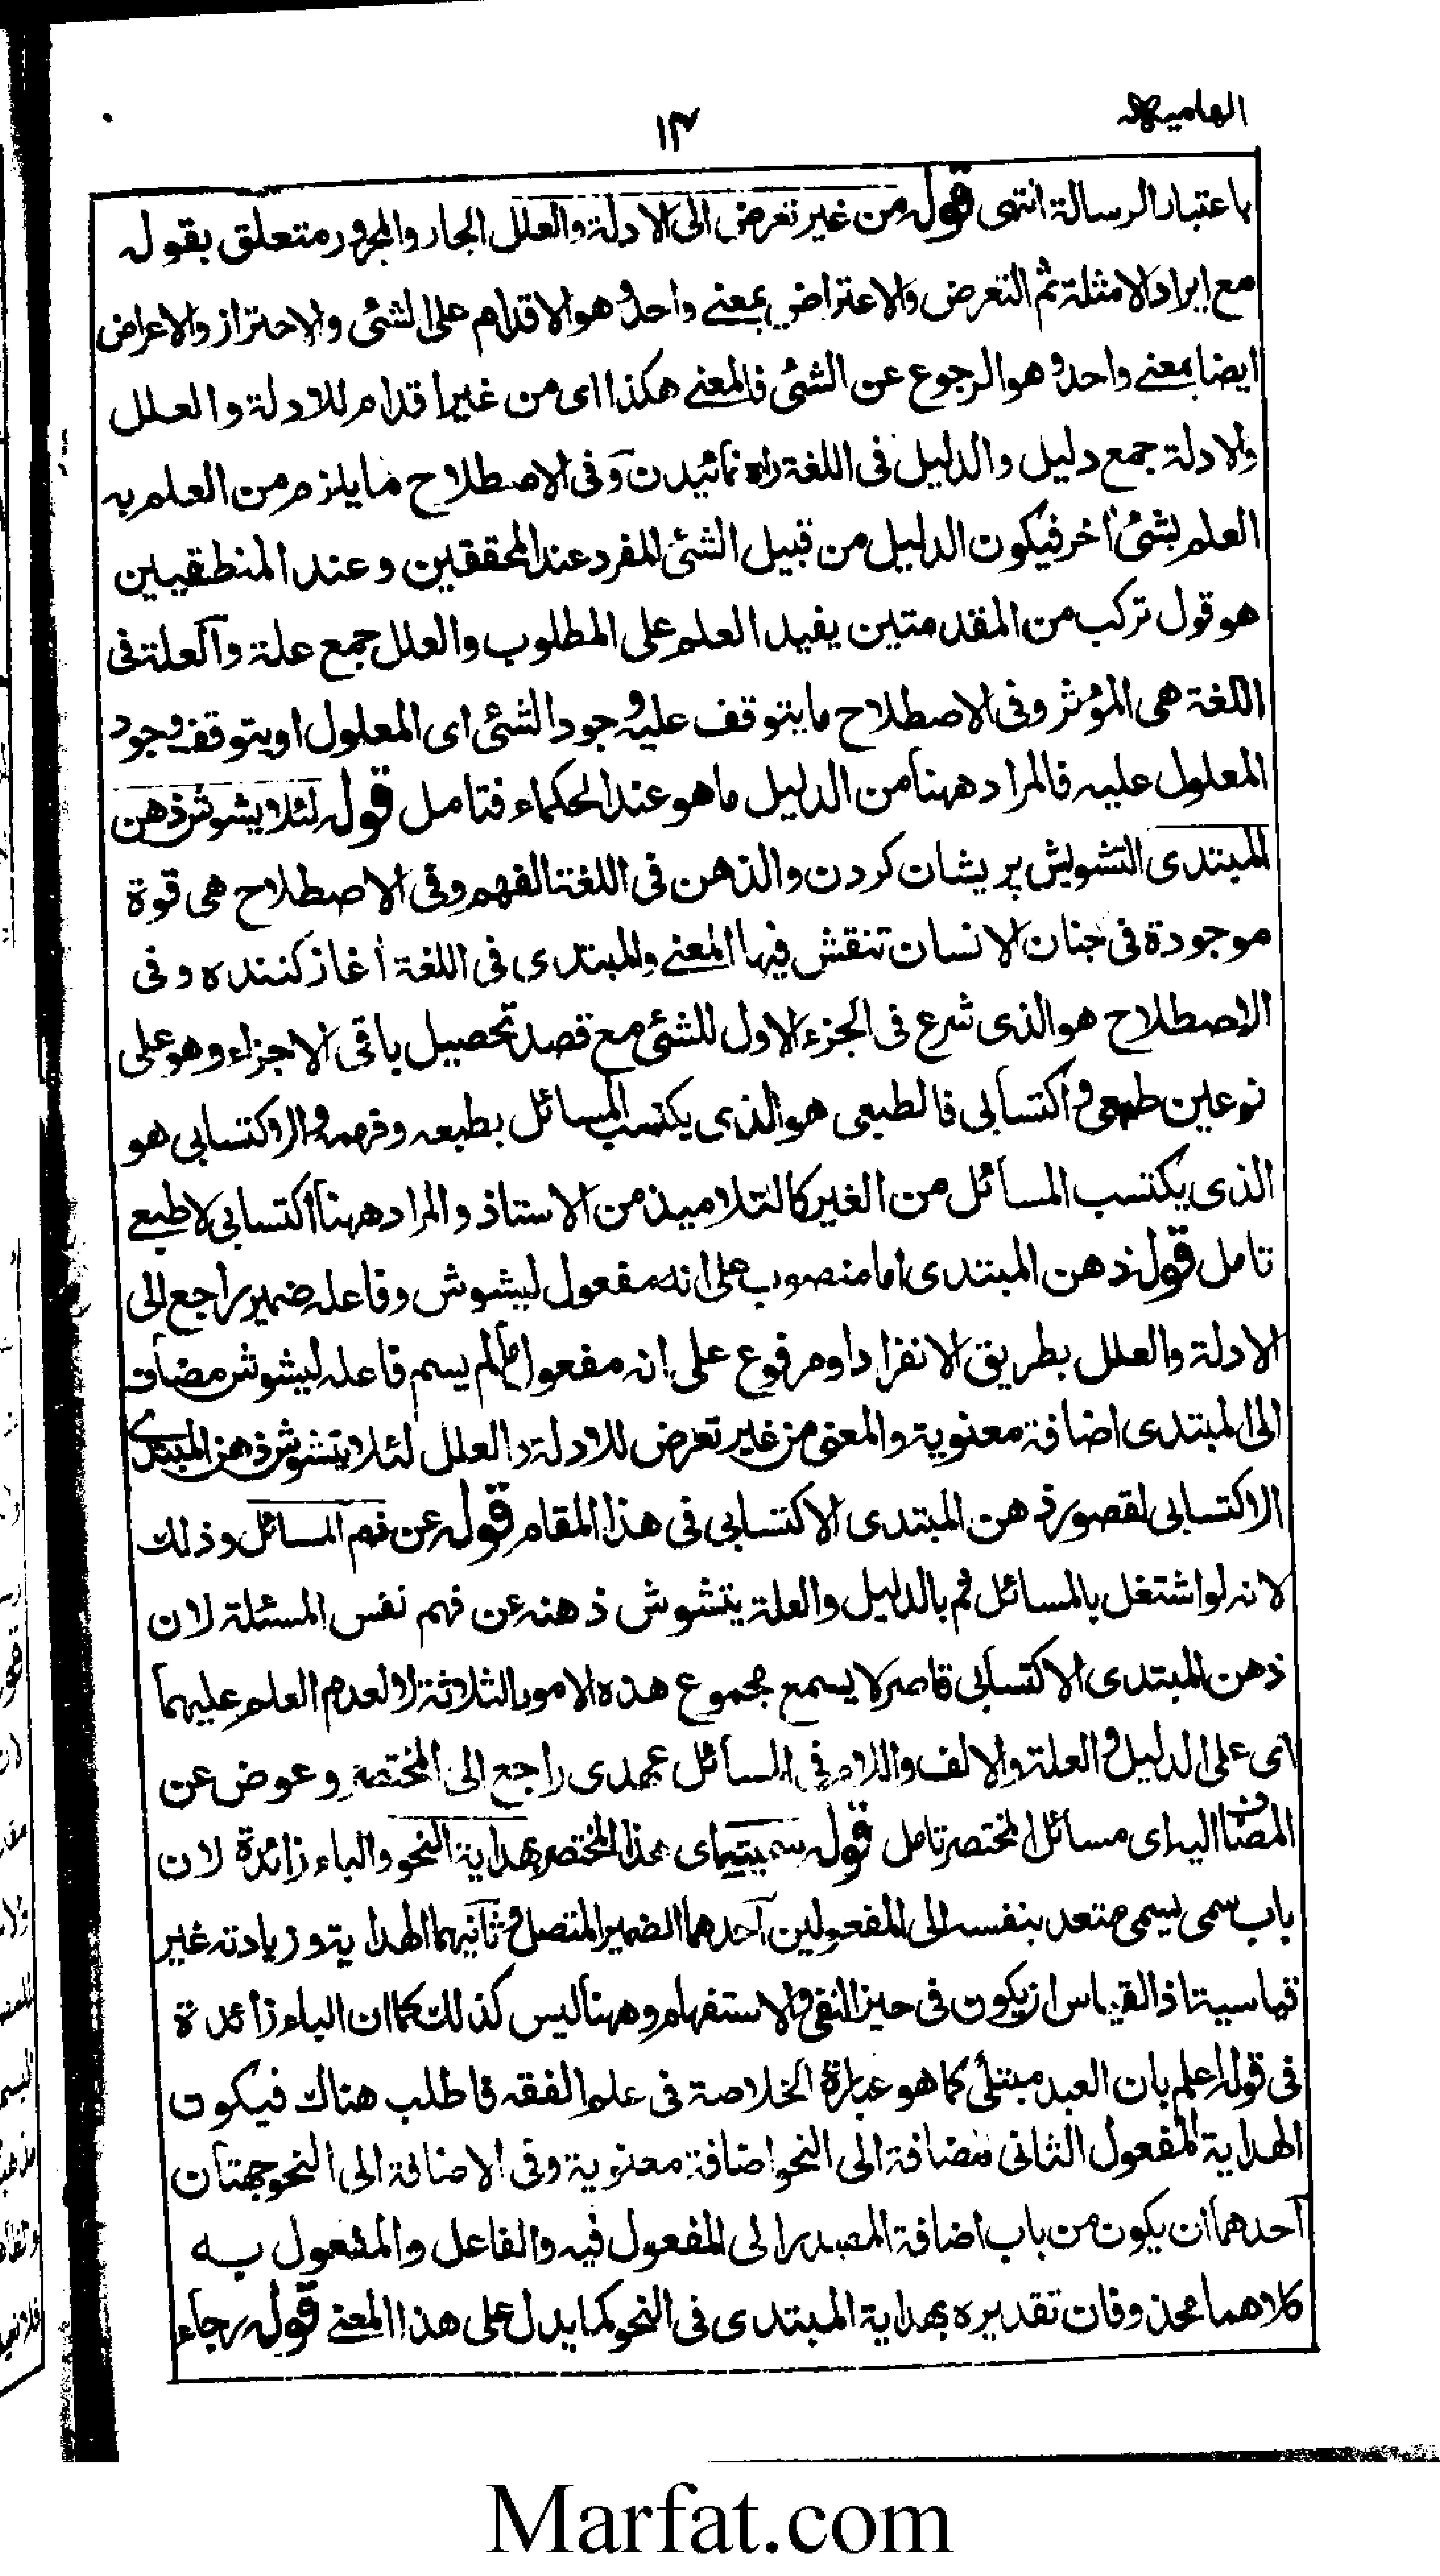 الهاميه
١٣
باعتبار الرسالة انتهى قوله من غير تعرض الى الادلة والعلل الجار والمجرور متعلق بقوله
مع ايراد الامثلة ثم التعرض والاعتراض بمعنے واحد وهو الاقدام على الشئ والاحتراز والاعراض
ايضا بمعنے واحد وهو الرجوع عن الشئ فالمعنے هكذا اى من غير اقدام للادلة والعلل
والادلة جمع دليل والدليل فى اللغة راه نمائيدن وفى الاصطلاح ما يلزم من العلم به
العلم بشئ اٰخر فيكون الدليل من قبيل الشئ المفرد عند المحققين وعند المنطقيين
هو قول تركب من المقدمتين يفيد العلم على المطلوب والعلل جمع علة والعلة فى
اللغة هى المؤثر وفى الاصطلاح ما يتوقف عليه وجود الشئ اى المعلول او يتوقف وجود
المعلول عليه فالمراد ههنا من الدليل ما هو عند الحكماء فتامل قوله لئلا يشوش ذهن
المبتدى التشويش پريشان كردن والذهن فى اللغة الفهم وفى الاصطلاح هى قوة
موجودة فى جنان الانسان تنقش فيها المعنے والمبتدى فى اللغة اٰغاز كننده وفى
الاصطلاح هو الذى شرع فى الجزء الاول للشئ مع قصد تحصيل باقى الاجزاء وهو على
نوعين طبعى واكتسابى فالطبعى هو الذى يكتسب المسائل بطبعه وفهمه والاكتسابى هو
الذى يكتسب المسائل من الغير كالتلاميذ من الاستاذ والمراد ههنا اكتسابى لا طبعے
تامل قوله ذهن المبتدى اما منصوب على انه مفعول ليشوش وفاعله ضمير راجع الى
الادلة والعلل بطريق الانفراد او مرفوع على انه مفعول ما لم يسم فاعله ليشوش مضاف
الى المبتدى اضافة معنوية والمعنى من غير تعرض للادلة والعلل لئلا يتشوش ذهن المبتدى
الاكتسابى لقصور ذهن المبتدى الاكتسابى فى هذا المقام قوله عن فهم المسائل وذلك
لانه لو اشتغل بالمسائل ثم بالدليل والعلة يتشوش ذهنه عن فهم نفس المسئلة لان
ذهن المبتدى الاكتسابى قاصر لا يسمع مجموع هذه الامور الثلاثة لا لعدم العلم عليهما
اى على الدليل والعلة والالف واللام فى المسائل عهدى راجع الى المختصر وعوض عن
المضاف اليه اى مسائل المختصر تامل قوله سميته اى هذا المختصر بهداية النحو والباء زائدة لان
باب سمى يسمى متعد بنفسه الى المفعولين احدهما الضمير المتصل وثانيهما الهداية وزيادته غير
قياسية اذ القياس ان يكون فى حيز النفى والاستفهام وههنا ليس كذلك كما ان الباء زائدة
فى قوله اعلم بان العبد مبتلى كما هو عبارة الخلاصة فى علم الفقه فاطلب هناك فيكون
الهداية المفعول الثانى مضافة الى النحو اضافة معنوية وفى الاضافة الى النحو جهتان
احدهما ان يكون من باب اضافة المصدر الى المفعول فيه والفاعل والمفعول به
كلاهما محذوفان تقديره بهداية المبتدى فى النحو كما يدل على هذا المعنے قوله رجاء
Marfat.com